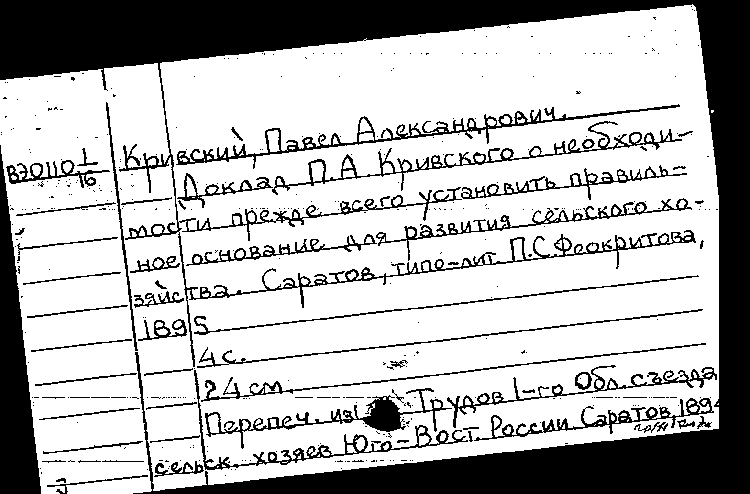 Кривский, Павел Александрович.
В70110 1/16
Доклад П.А Кривского о необходи-
мости прежде всего установить правиль-
ное основание для развития сельского хо-
зяйства. Саратов, типо-лит П.С.Феокритова,
1895
4 с.
24 см.
Перепеч. из Трудов 1-го Обл. съезда
сельск. хозяев Юго-Вост. России Саратов, 189